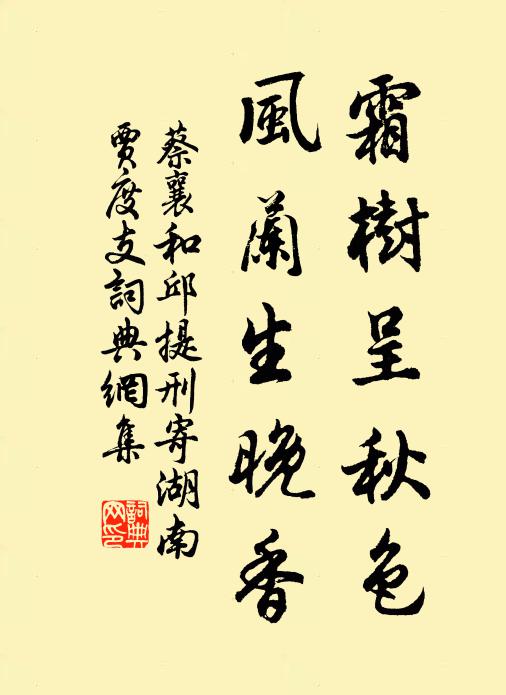 霜樹呈秋色
風蘭生晚香
蔡襄和邱提刑寄湖南
賈度支詞典網集
詞典
网印